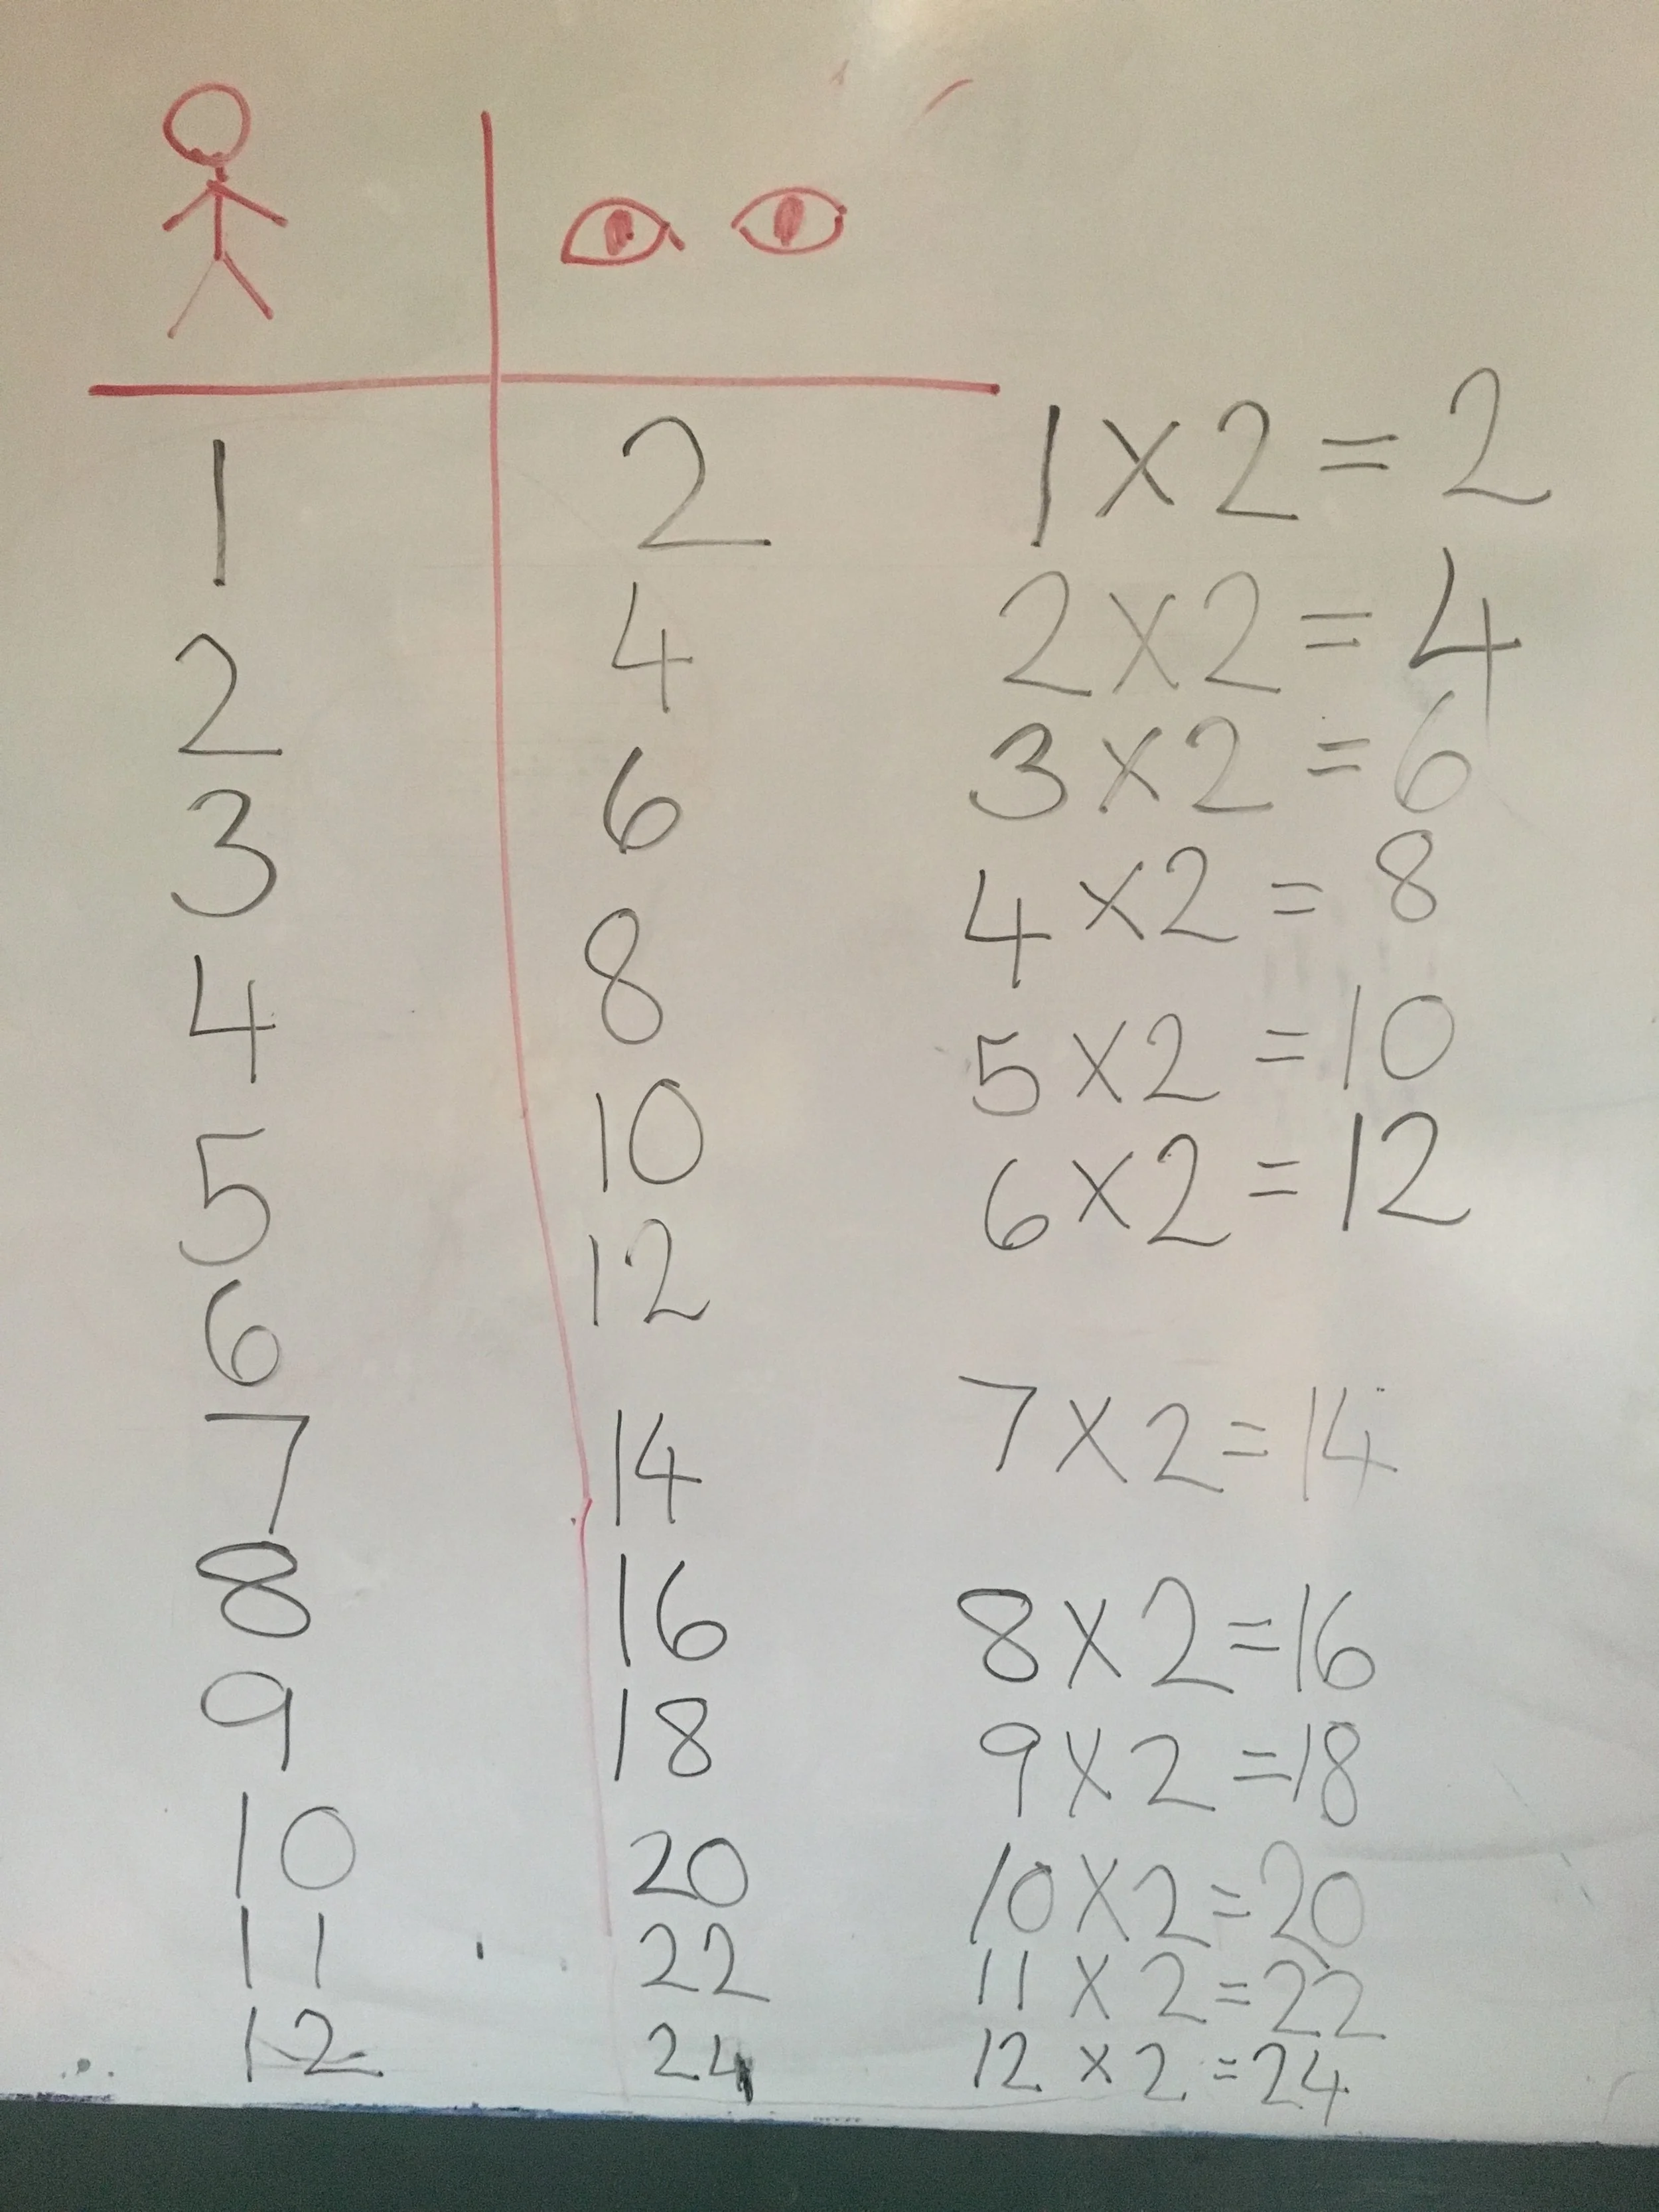 1 2 1 × 2 = 2
2 4 2 × 2 = 4
3 6 3 × 2 = 6
4 8 4 × 2 = 8
5 10 5 × 2 = 10
6 12 6 × 2 = 12
7 14 7 × 2 = 14
8 16 8 × 2 = 16
9 18 9 × 2 = 18
10 20 10 × 2 = 20
11 22 11 × 2 = 22
12 24 12 × 2 = 24